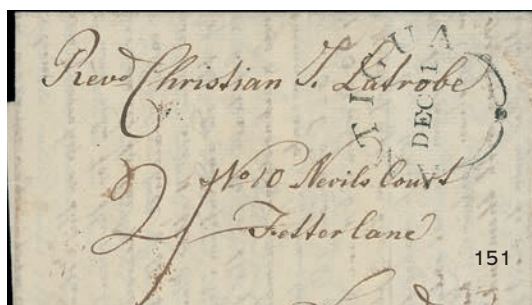 Revd Christian I. Latrobe
TIGUA
DEC 1
No 10 Nevils Court
2/
Fetter Lane
151